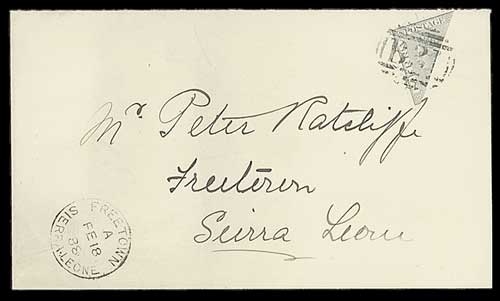 POSTAGE
B31
Mr Peter Ratcliffe
Freetown
Sierra Leone
FREETOWN
A
FE 18
88
SIERRA LEONE